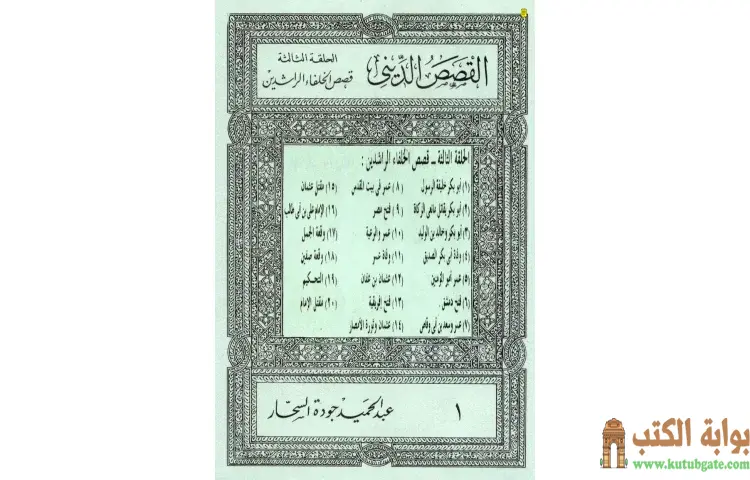 القصص الديني
الحلقة الثالثة
قصص الخلفاء الراشدين
الحلقة الثالثة ــ قصص الخلفاء الراشدين :
(١) أبو بكر خليفة الرسول
(٢) أبو بكر يقاتل مانعى الزكاة
(٣) أبو بكر وخالد بن الوليد
(٤) وفاة أبي بكر الصديق
(٥) عمر أمير المؤمنين
(٦) فتح دمشق
(٧) عمر وسعد بن أبي وقاص
(٨) عمر في بيت المقدس
(٩) فتح مصر
(١٠) عمر والرعية
(١١) وفاة عمر
(١٢) عثمان بن عفان
(١٣) فتح إفريقية
(١٤) عثمان وثورة الأمصار
(١٥) مقتل عثمان
(١٦) الإمام على بن أبي طالب
(١٧) وقعة الجمل
(١٨) وقعة صفين
(١٩) التحكيم
(٢٠) مقتل الإمام
١
عبد الحميد جودة السحار
بوابة الكتب
www.kutubgate.com